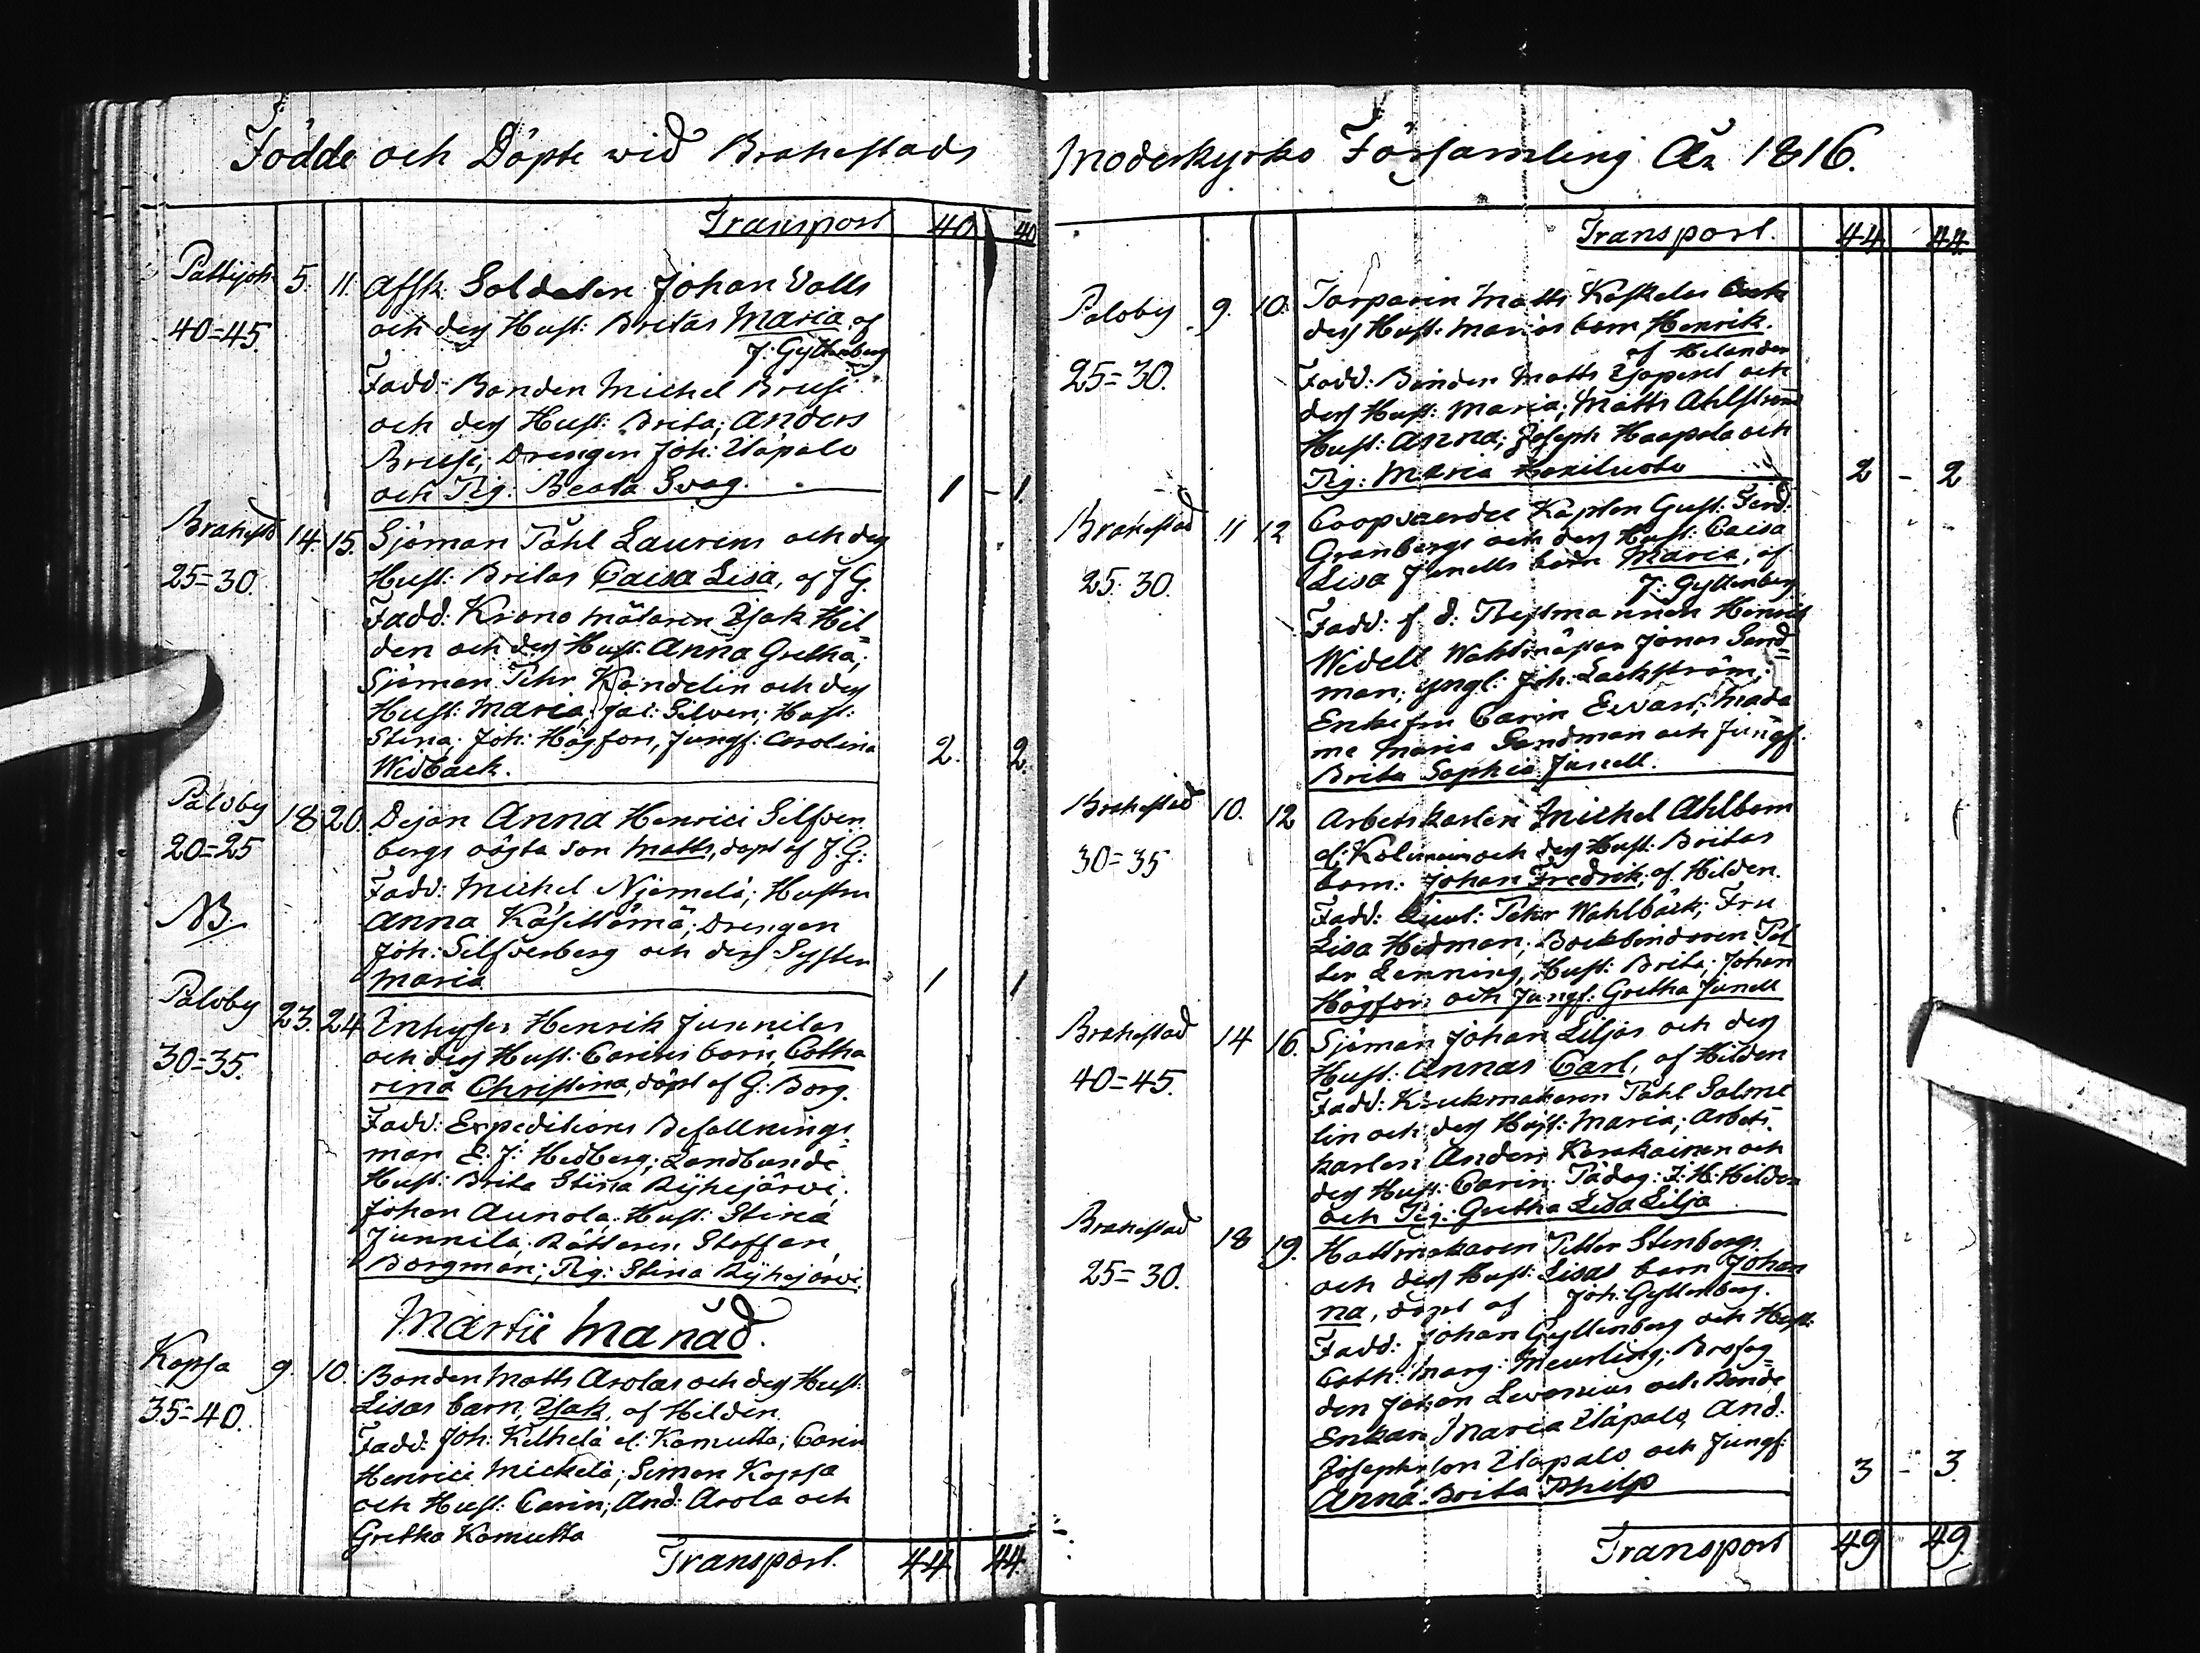 Födde och Döpte wid Brahestads
Transport 40 40
Pattijoki 5. 11. Afsk. Soldaten Johan Valls
och dess Hust: Britas Maria, af
40=45. J. Gyllenberg
Fadd: Bonden Michel Brusi
och dess Hust: Brita; Anders
Brusi; Drengen Joh: Yläpalo
och Pig: Beata Svag. 1 - 1.
Brahestd 14. 15. Sjöman Påhl Laurins och dess
25=30. Hust: Britas Caisa Lisa, af J G.
Fadd: Krono mätaren Isak Hil=
den och dess Hust: Anna Gretha;
Sjöman Pehr Kandelin och dess
Hust: Maria; Jac: Silven; Hust:
Stina; Joh: Högfors, Jungf: Carolina
Widbäck. 2. 2.
Paloby 18 20. Dejan Anna Henrici Silfver
20=25 bergs oägta son Matts, döpt af J. G:
Fadd: Michel Njemelä; Hustru
NB. Anna Käsittömä; Drengen
Joh: Silfverberg och dess Syster
Maria 1 1
Paloby 23. 24. Inhyses Henrik Junnilas
30=35. och dess Hust: Carins barn, Catha
rina Christina, döpt af G: Borg.
Fadd: Expeditions Befallnings=
man E: J: Hedberg; Landbonde
Hust: Brita Stina Ryhejärvi;
Johan Aunola; Hust: Stina
Junnila; Rättaren Staffan
Borgman; Pig: Stina Ryhejärvi.
Martii Månad.
Kopsa 9. 10. Bonden Matts Arolas och dess Hust:
35=40. Lisas barn, Isak, af Hilden.
Fadd: Joh: Kelhelä el: Kamutta; Carin
Henrici Mickelä; Simon Kopsa
och Hust: Carin; And: Arola och
Gretha Kamutta
Transport. 44. 44.
Moderkyrko Församling År 1816.
Transport. 44 44
Paloby 9. 10. Torparen Matts Kaskelas och
dess Hust: Marias barn Henrik.
25=30. af Hilander
Fadd: Bonden Matts Ylöperä och
dess Hust: Maria; Matts Ahlström
Hust: Anna; Joseph Haapala och
Pig: Maria 2 - 2
Brahestad 11 12 Coopvaerdie Kapten Gust: Ferd:
Granbergs och dess Hust: Caisa
25. 30. Lisa Junells barn Maria, af
J: Gyllenberg
Fadd: f. d: Henric
Widell Jonas Sand=
man; yngl: Joh: Lackström;
Enkefru Carin Ervast; Mada
me Maria Sandman och Jungf:
Brita Sophia Junell.
Brahestad 10. 12 Arbetskarlen Michel Ahlbom
30=35 och dess Hust: Britas
barn: Johan Fredrik, af Hilden.
Fadd: Lieut: Pehr Wahlbäck; Fru
Lisa Hedman; Bockbindaren Pet
ter Lenning, Hust: Brita; Johan
Högfors och Jungf: Gretha Junell
Brahestad 14 16. Sjöman Johan Liljas och dess
40=45. Hust: Annas Carl, af Hilden
Fadd: Krukmakaren Påhl Salme
lin och dess Hust: Maria; Arbets
karlen Anders Karakainen och
dess Hust: Carin; Pädag: J: H: Hilden
och Pig: Gretha Lisa Lilja
Brahestad 18 19. Hattmakaren Petter Stenbergs
25=30. och dess Hust: Lisas barn Johan
na, döpt af Joh: Gyllenberg.
Fadd: Johan Gyllenberg och Hust:
Cath: Marg: Meurling; Brofog=
den Johan Levonius och Bonde
Enkan Maria Yläpalo, And:
Josephsson Ylapalo och Jungf:
Anna Brita Philp 3 - 3.
Transport 49 49.